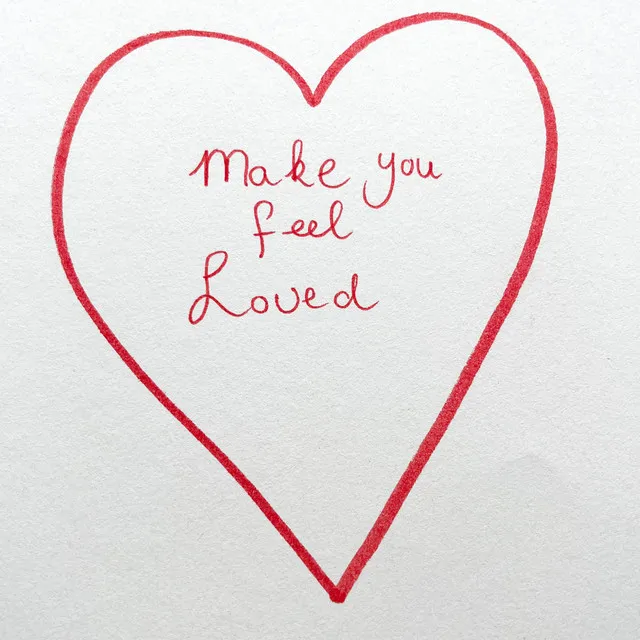 Make you
feel
Loved